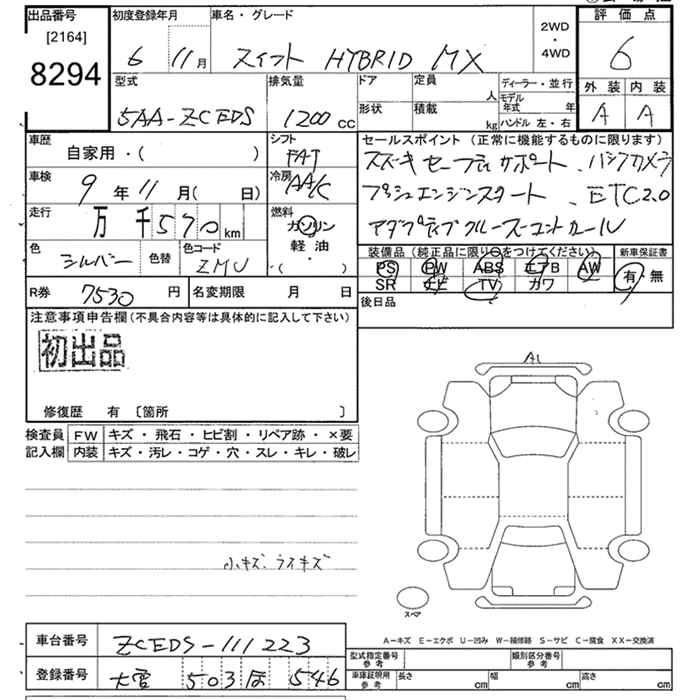 出品番号
[2164]
8294
初度登録年月
6 11月
車名・グレード
スイフト HYBRID MX
2WD
・
4WD
評価点
6
型式
5AA-ZCEDS
排気量
1200cc
ドア
定員
人
形状
積載
kg
ディーラー・並行
モデル年式 年
ハンドル 左・右
外装 内装
A A
車歴
自家用・( )
シフト
FAT
セールスポイント(正常に機能するものに限ります)
スズキ セーフティサポート、バックカメラ
プッシュエンジンスタート、ETC2.0
アダプティブクルーズコントロール
車検
9年11月( 日)
冷房
AA/C
走行
万 千570km
燃料
ガソリン
軽油
・( )
色
シルバー
色替
色コード
ZMU
装備品(純正品に限り○をつけてください)
PS PW ABS エアB AW
SR ナビ TV カワ
新車保証書
有 無
R券 7530円
名変期限 月 日
後日品
注意事項申告欄(不具合内容等は具体的に記入して下さい)
初出品
修復歴 有 〔箇所 〕
検査員記入欄
FW キズ・飛石・ヒビ割・リペア跡・×要
内装 キズ・汚レ・コゲ・穴・スレ・キレ・破レ
A1
小キズ、ラスキズ
スペア
A-キズ E-エクボ U-凹み W-補修跡 S-サビ C-腐食 XX-交換済
車台番号 ZCEDS-111223
型式指定番号 参考
類別区分番号 参考
登録番号 大宮 503 ほ 546
車庫証明用 参考
長さ cm
幅 cm
高さ cm